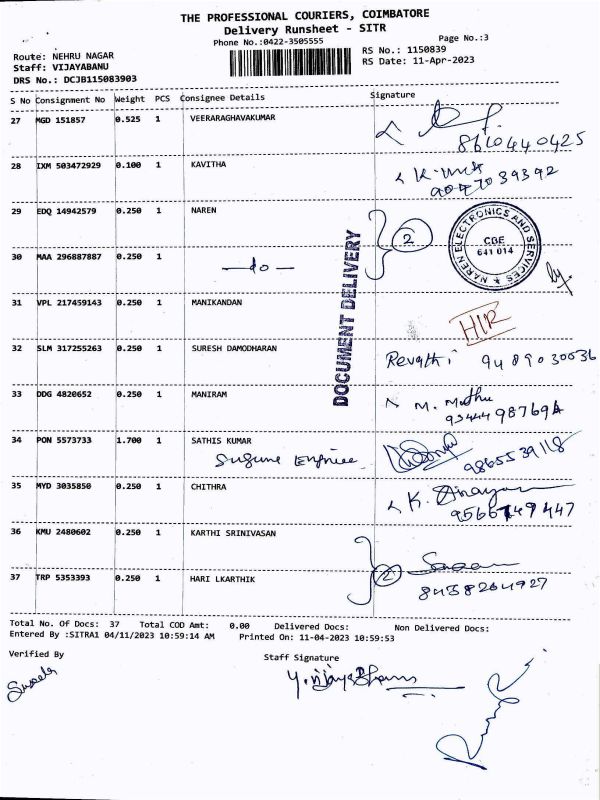 THE PROFESSIONAL COURIERS, COIMBATORE
Delivery Runsheet - SITR
Phone No.:0422-3505555
Page No.:3
Route: NEHRU NAGAR
RS No.: 1150839
Staff: VIJAYABANU
RS Date: 11-Apr-2023
DRS No.: DCJB115083903
S No Consignment No Weight PCS Consignee Details Signature
27 MGD 151857 0.525 1 VEERARAGHAVAKUMAR
28 IXM 503472929 0.100 1 KAVITHA
9047039392
29 EDQ 14942579 0.250 1 NAREN
2
NAREN ELECTRONICS AND SERVICES
CBE
641 014
30 MAA 296887887 0.250 1 —do—
DOCUMENT DELIVERY
31 VPL 217459143 0.250 1 MANIKANDAN
32 SLM 317255263 0.250 1 SURESH DAMODHARAN
Revathi 9489030036
33 DDG 4820652 0.250 1 MANIRAM
M. Muthu
34 PON 5573733 1.700 1 SATHIS KUMAR
9865539118
35 MYD 3035850 0.250 1 CHITHRA
9566749447
36 KMU 2480602 0.250 1 KARTHI SRINIVASAN
37 TRP 5353393 0.250 1 HARI LKARTHIK
2
8438264927
Total No. Of Docs: 37 Total COD Amt: 0.00 Delivered Docs: Non Delivered Docs:
Entered By :SITRA1 04/11/2023 10:59:14 AM Printed On: 11-04-2023 10:59:53
Verified By
Staff Signature